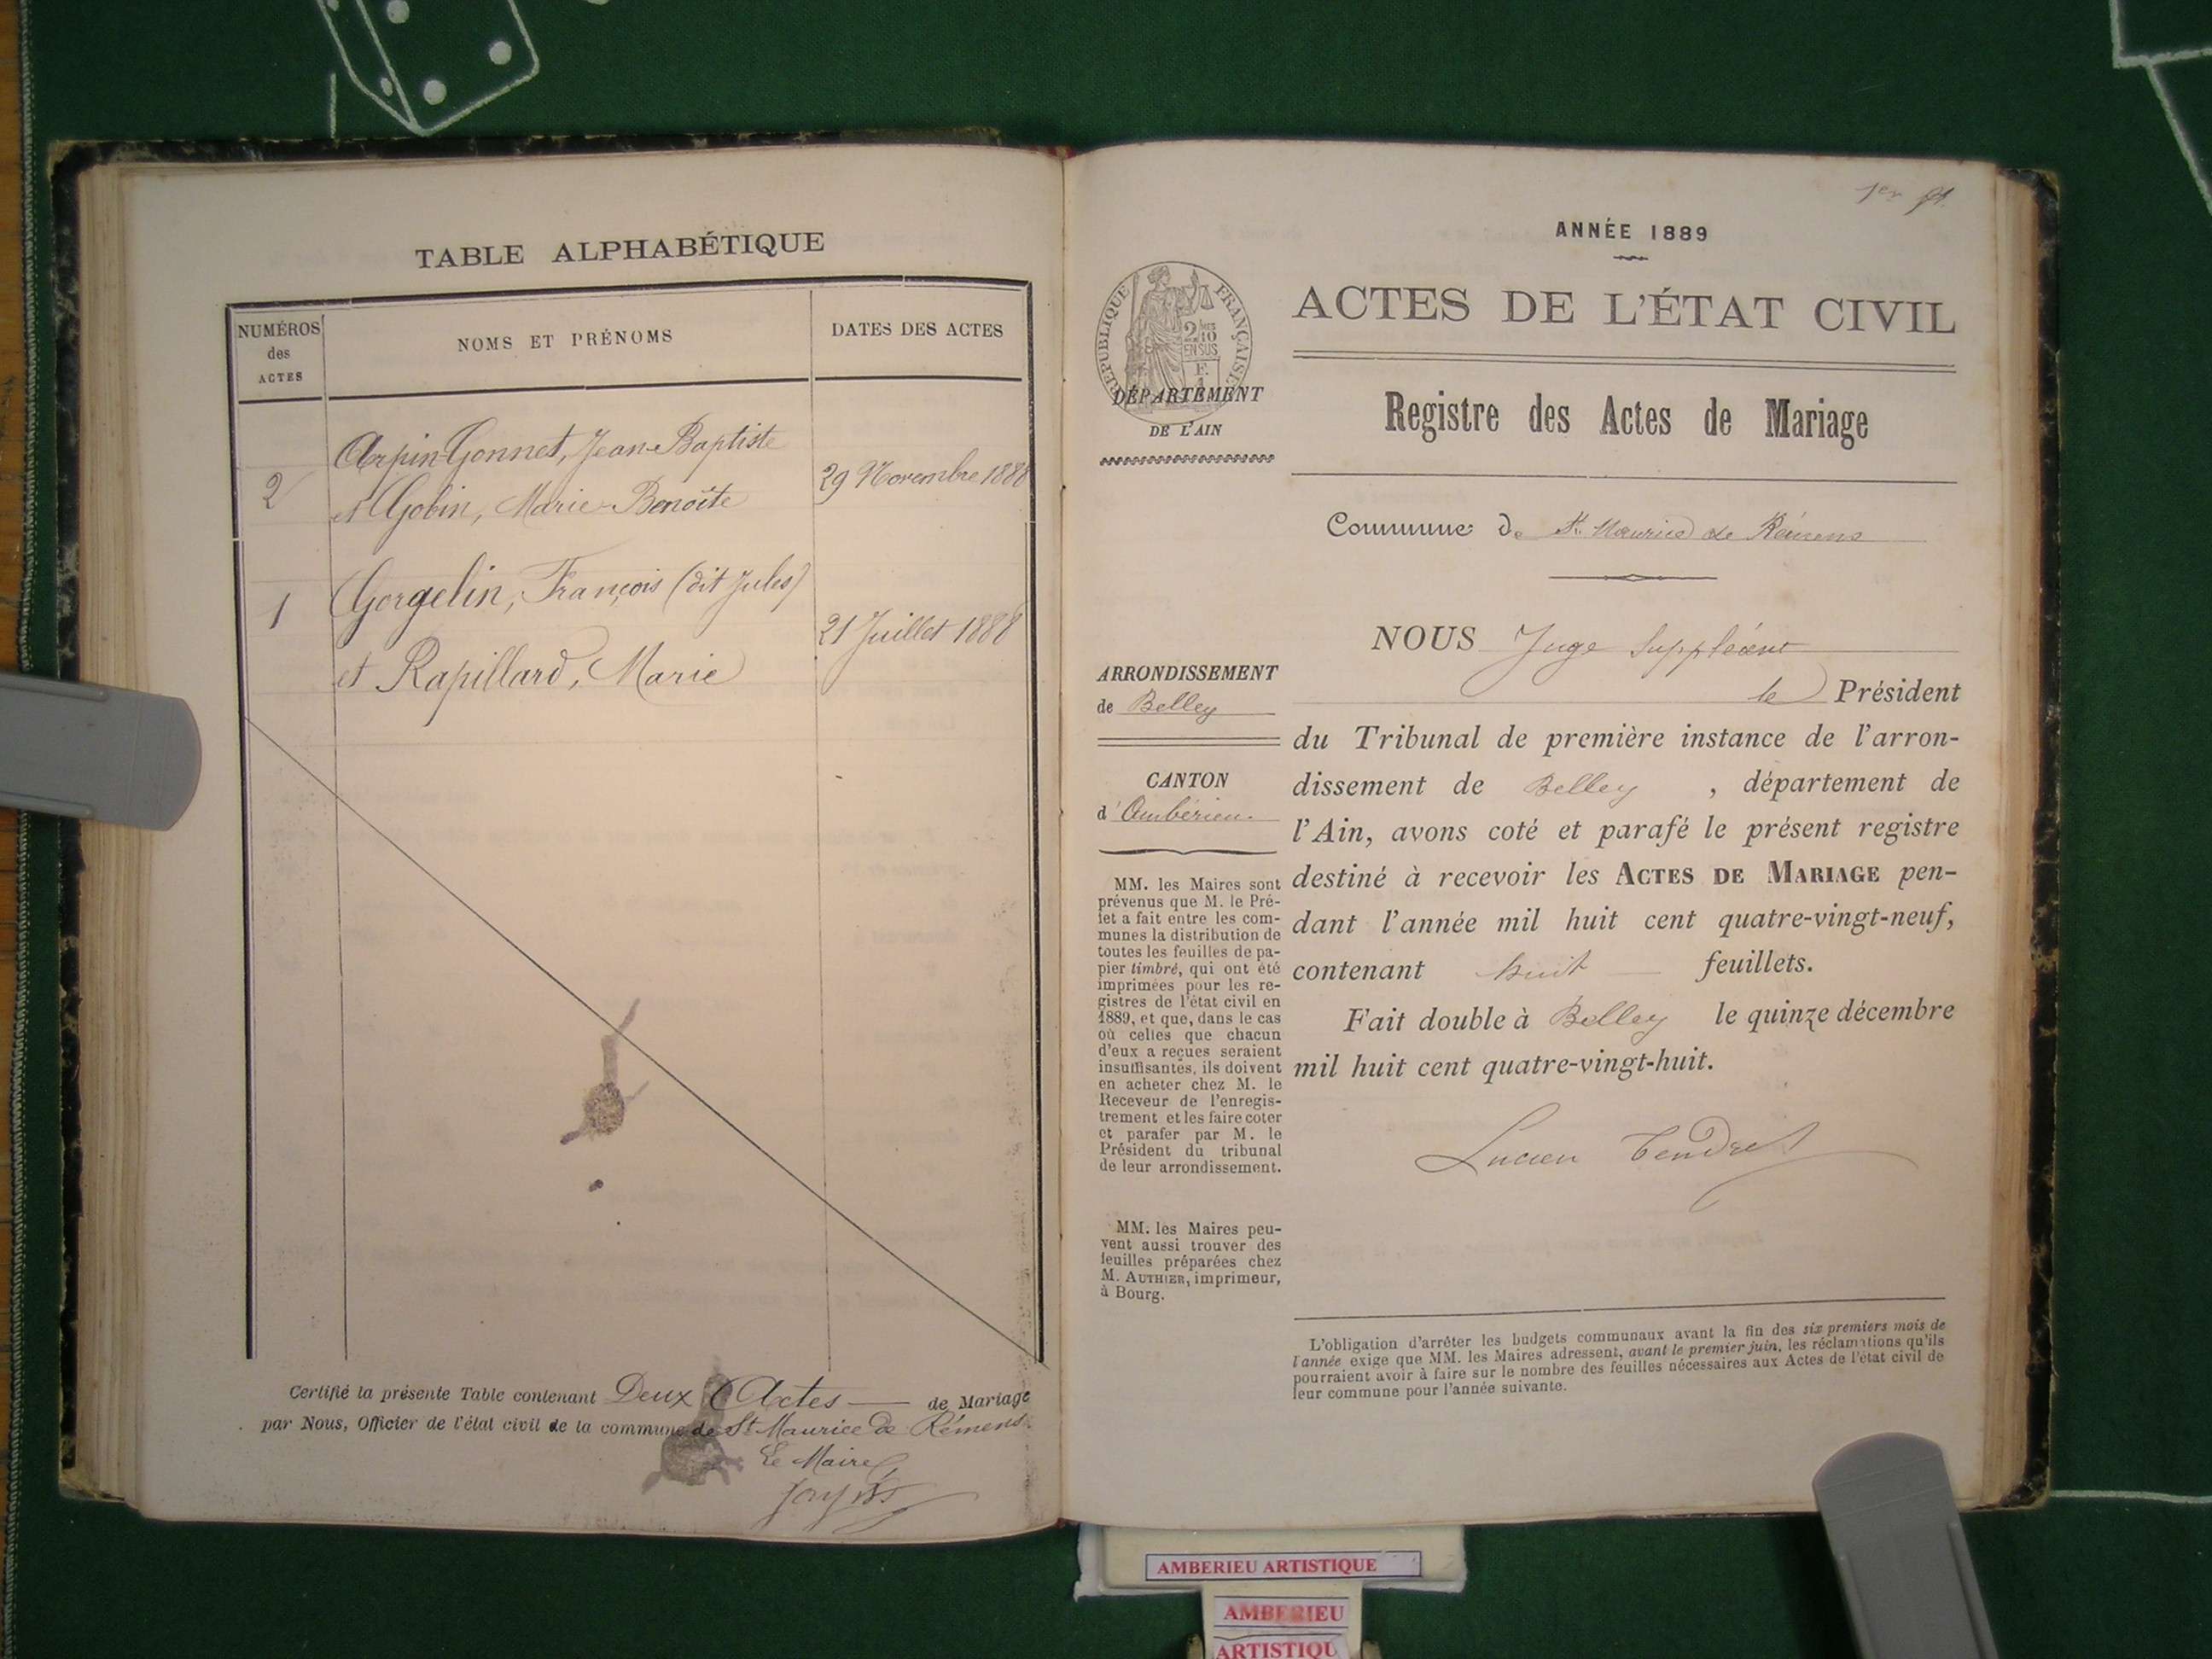 TABLE ALPHABÉTIQUE
NUMÉROS
des
ACTES
NOMS ET PRÉNOMS
DATES DES ACTES
Arpin-Gonnet, Jean-Baptiste
2
et Gobin, Marie-Benoîte
29 Novembre 1888
Gorgelin, François (dit Jules)
1
21 Juillet 1888
et Rapillard, Marie
Certifié la présente Table contenant Deux Actes — de Mariage
par Nous, Officier de l'état civil de la commune de St Maurice de Rémens.
Le Maire,
1er
ANNÉE 1889
RÉPUBLIQUE FRANÇAISE
2/10
EN SUS
F.
ACTES DE L'ÉTAT CIVIL
DÉPARTEMENT
DE L'AIN
Registre des Actes de Mariage
Commune de St. Maurice de Rémens
ARRONDISSEMENT
de Belley
CANTON
d'Ambérieu.
MM. les Maires sont
prévenus que M. le Pré-
fet a fait entre les com-
munes la distribution de
toutes les feuilles de pa-
pier timbré, qui ont été
imprimées pour les re-
gistres de l'état civil en
1889, et que, dans le cas
où celles que chacun
d'eux a reçues seraient
insuffisantes, ils doivent
en acheter chez M. le
Receveur de l'enregis-
trement et les faire coter
et parafer par M. le
Président du tribunal
de leur arrondissement.
MM. les Maires peu-
vent aussi trouver des
feuilles préparées chez
M. AUTHIER, imprimeur,
à Bourg.
NOUS Juge Suppléant
le Président
du Tribunal de première instance de l'arron-
dissement de Belley , département de
l'Ain, avons coté et parafé le présent registre
destiné à recevoir les ACTES DE MARIAGE pen-
dant l'année mil huit cent quatre-vingt-neuf,
contenant huit — feuillets.
Fait double à Belley le quinze décembre
mil huit cent quatre-vingt-huit.
Lucien Tendret
L'obligation d'arrêter les budgets communaux avant la fin des six premiers mois de
l'année exige que MM. les Maires adressent, avant le premier juin, les réclamations qu'ils
pourraient avoir à faire sur le nombre des feuilles nécessaires aux Actes de l'état civil de
leur commune pour l'année suivante.
AMBERIEU ARTISTIQUE
AMBERIEU
ARTISTIQU